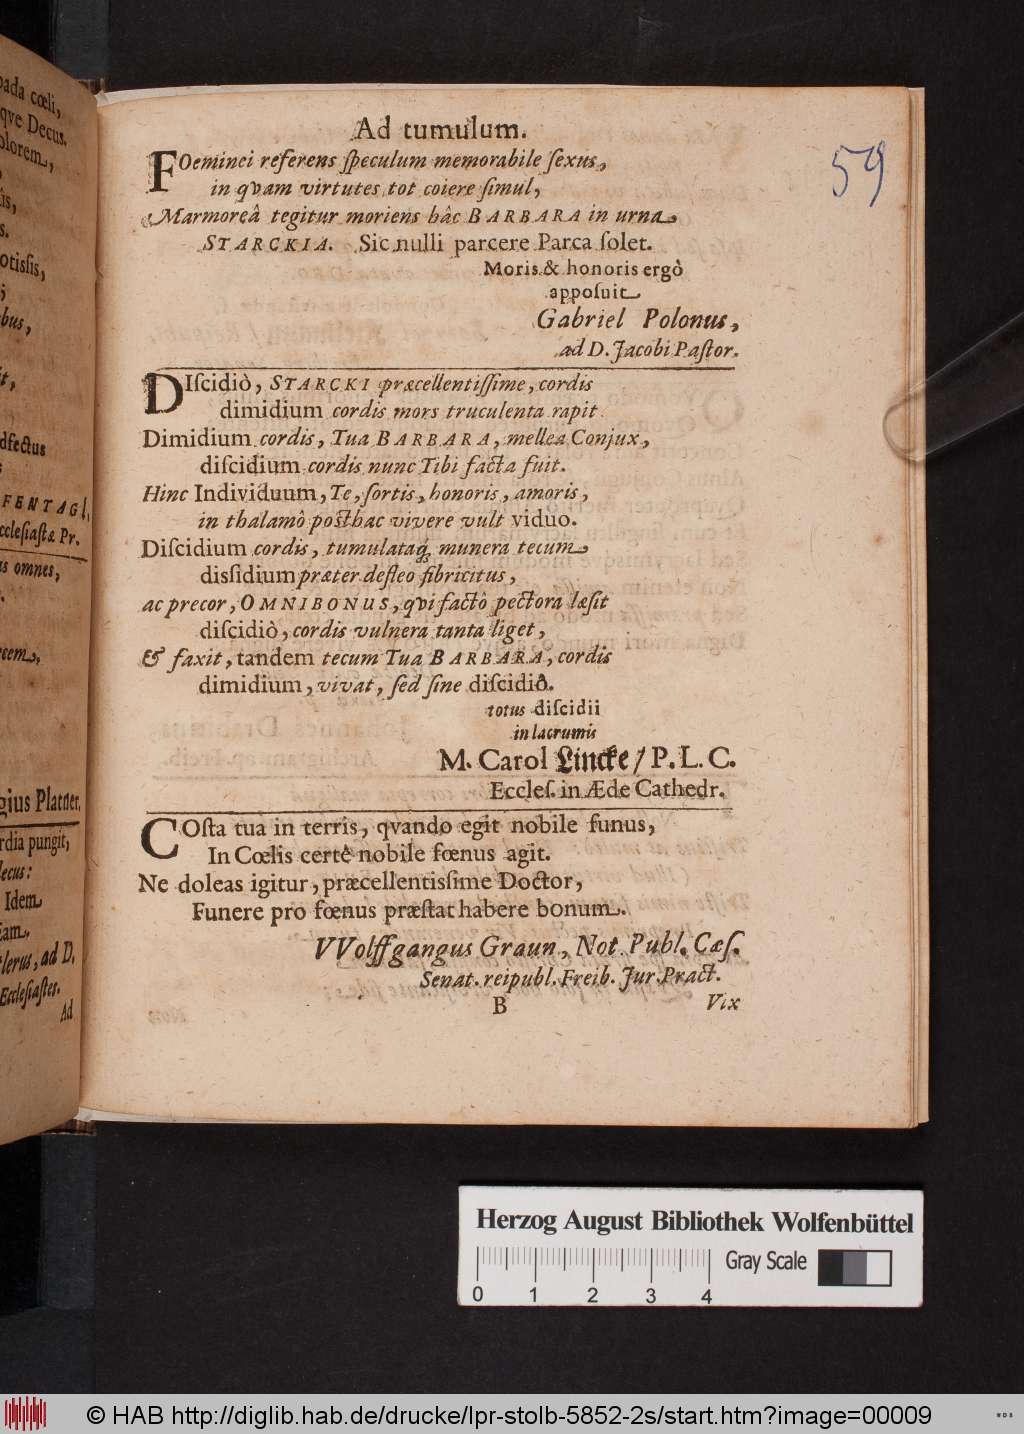 pada cœli,
qve Decus.
olorem,
is,
s.
otissis,
bus,
it,
dfectus
FENTAGI,
cclesiastæ Pr.
us omnes,
ecem,
gius Platner,
rdia pungit,
lecus:
Idem
Eam.
lerus, ad D.
Ecclesiastes.
Ad
59
Ad tumulum.
FOeminei referens ſpeculum memorabile ſexus,
in qvam virtutes tot coiere ſimul,
Marmoreâ tegitur moriens hâc BARBARA in urna
STARCKIA. Sic nulli parcere Parca ſolet.
Moris & honoris ergò
appoſuit
Gabriel Polonus,
ad D. Jacobi Paſtor.
DIſcidiò, STARCKI præcellentiſſime, cordis
dimidium cordis mors truculenta rapit
Dimidium cordis, Tua BARBARA, mellea Conjux,
diſcidium cordis nunc Tibi facta fuit.
Hinc Individuum, Te, ſortis, honoris, amoris,
in thalamô poſthac vivere vult viduo.
Diſcidium cordis, tumulataq́; munera tecum
disſidium præter defleo fibricitus,
ac precor, OMNIBONUS, qvi factô pectora læſit
diſcidiò, cordis vulnera tanta liget,
& faxit, tandem tecum Tua BARBARA, cordis
dimidium, vivat, ſed ſine diſcidiô.
totus diſcidii
in lacrumis
M. Carol Lincke/ P. L. C.
Eccleſ. in Æde Cathedr.
COſta tua in terris, qvando egit nobile funus,
In Cœlis certè nobile fœnus agit.
Ne doleas igitur, præcellentisſime Doctor,
Funere pro fœnus præſtat habere bonum.
VVolffgangus Graun, Not. Publ. Cæſ.
Senat. reipubl. Freib. Jur. Pract.
B
Vix
Herzog August Bibliothek Wolfenbüttel
Gray Scale
0 1 2 3 4
© HAB http://diglib.hab.de/drucke/lpr-stolb-5852-2s/start.htm?image=00009